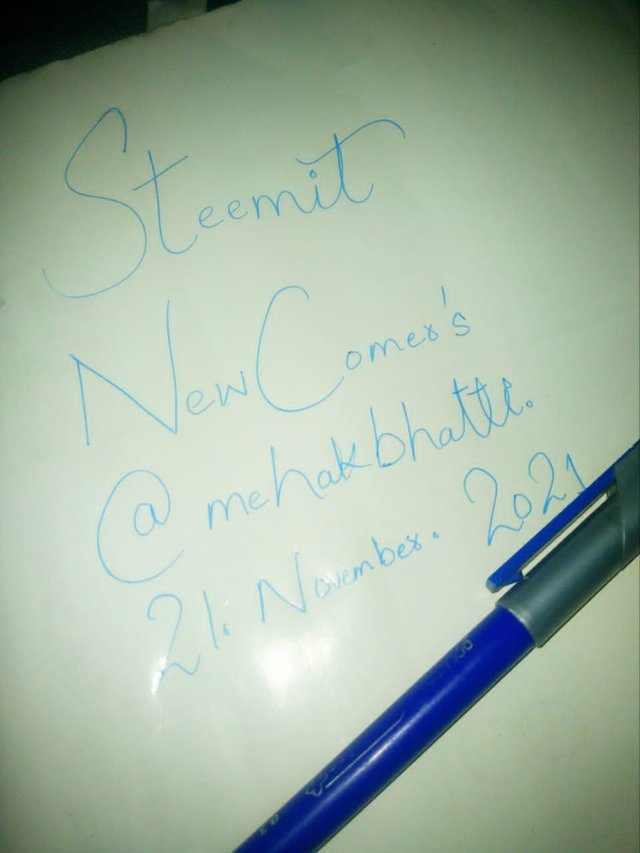 Steemit
NewComer's
@mehakbhatti.
21. November. 2021